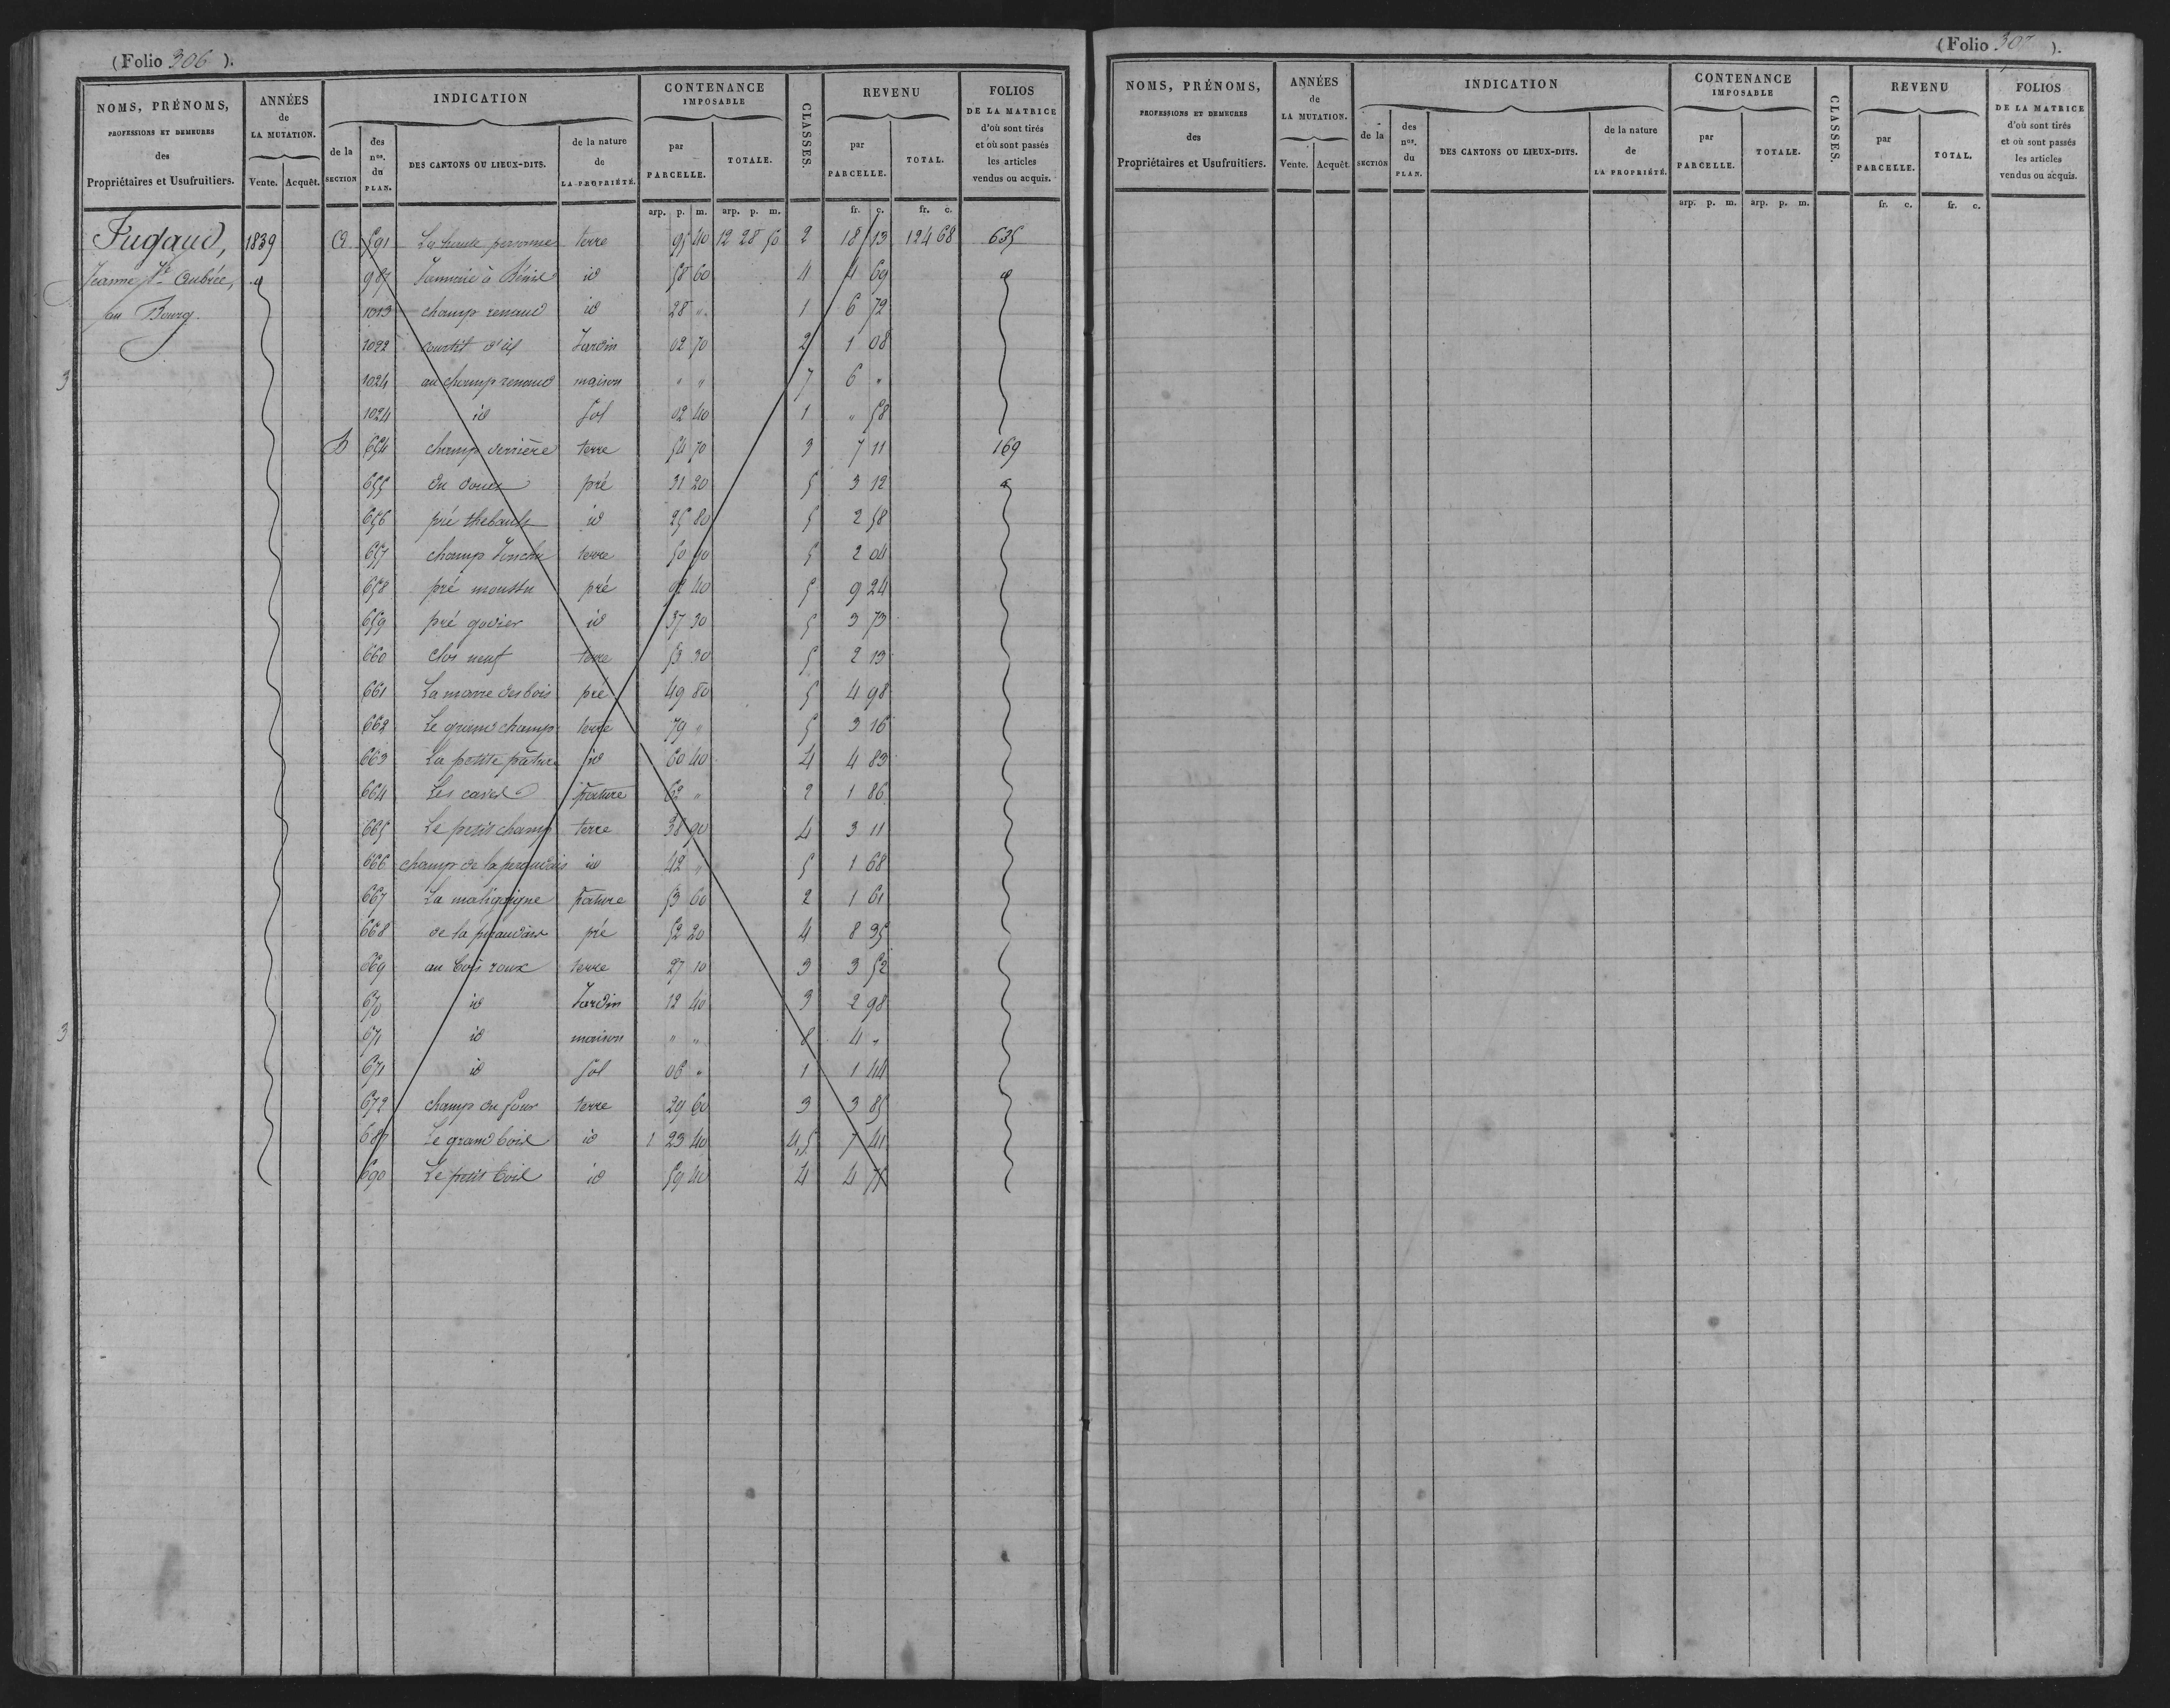 (Folio 306 ).
NOMS, PRÉNOMS, PROFESSIONS ET DEMEURES des Propriétaires et Usufruitiers.
ANNÉES de LA MUTATION. Vente. Acquêt.
INDICATION de la SECTION des nos. du PLAN. DES CANTONS OU LIEUX-DITS. de la nature de LA PROPRIÉTÉ.
CONTENANCE IMPOSABLE par PARCELLE. TOTALE.
CLASSES.
REVENU par PARCELLE. TOTAL.
FOLIOS DE LA MATRICE d'où sont tirés et où sont passés les articles vendus ou acquis.
arp. p. m. arp. p. m. fr. c. fr. c.
Fugaud, 1839 A 591 La haute personne terre 95 40 12 28 50 2 18 13 124 68 635
Jeanne Ve Aubrée, 987 à id 58 60 4 4 69
au Bourg. 1013 champ renaud id 28 " 1 6 72
1022 courtil Jardin 02 70 2 1 08
3 1024 au champ renaud maison " " 7 6 "
1024 id Sol 02 40 1 " 58
B 654 champ derrière terre 54 70 3 7 11 169
655 du pré 31 20 5 3 12
656 pré thebault id 25 80 5 2 58
657 champ terre 50 5 2 04
658 pré moussu pré 92 40 5 9 24
659 pré govier id 37 30 5 3 73
660 Clos neuf terre 53 30 5 2 13
661 La marre des bois pré 49 80 5 4 98
662 Le grand champ terre 79 " 5 3 16
663 La petite pature id 60 40 4 4 83
664 Les pature 62 " 2 1 86
665 Le petit champ terre 38 90 4 3 11
666 champ de la id 42 " 5 1 68
667 La pature 53 60 2 1 61
668 de la pré 52 20 4 8 35
669 au bois roux terre 27 10 3 3 52
670 id Jardin 12 40 3 2 98
3 671 id maison " " 8 4 "
671 id Sol 06 " 1 1 44
672 champ du four terre 29 60 3 3 85
687 Le grand bois id 1 23 40 4,5 7 41
690 Le petit bois id 59 40 4 4 75
(Folio 307 ).
NOMS, PRÉNOMS, PROFESSIONS ET DEMEURES des Propriétaires et Usufruitiers.
ANNÉES de LA MUTATION. Vente. Acquêt.
INDICATION de la SECTION des nos. du PLAN. DES CANTONS OU LIEUX-DITS. de la nature de LA PROPRIÉTÉ.
CONTENANCE IMPOSABLE par PARCELLE. TOTALE.
CLASSES.
REVENU par PARCELLE. TOTAL.
FOLIOS DE LA MATRICE d'où sont tirés et où sont passés les articles vendus ou acquis.
arp. p. m. arp. p. m. fr. c. fr. c.